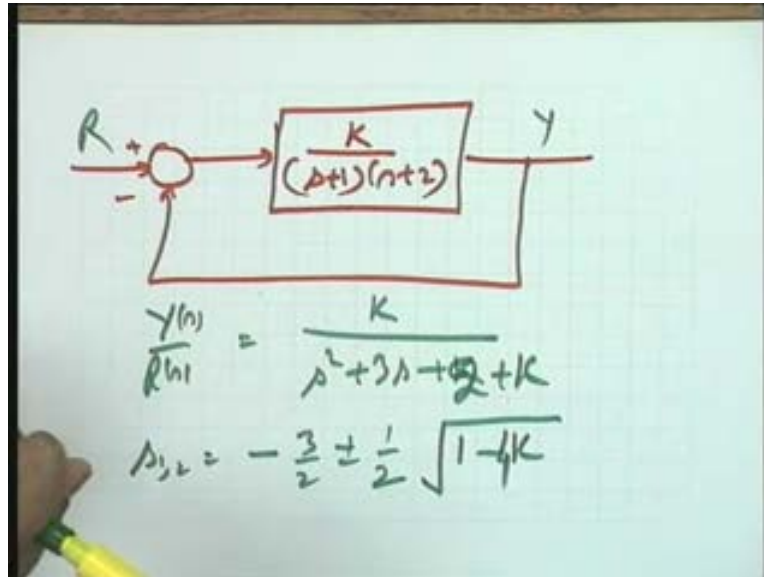 R + Y
K
(s+1)(s+2)
-
Y(s) K
R(s) = s² + 3s + 2 + K
s₁,₂ = - 3/2 ± 1/2 √1-4K